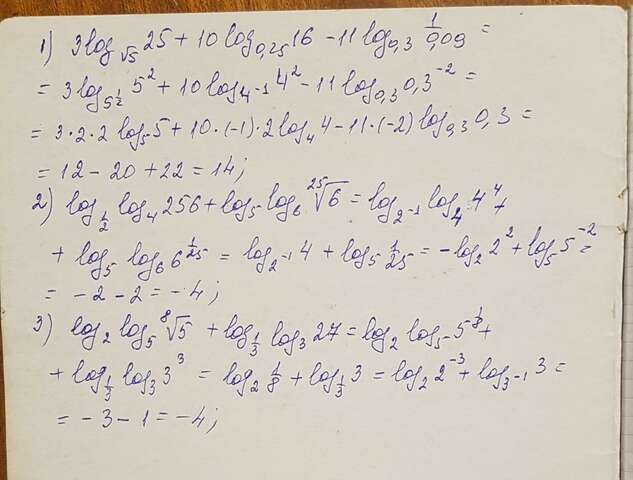 1) 3log_{√5} 25 + 10 log_{0,25} 16 - 11 log_{0,3} \frac{1}{0,09} =
= 3 log_{5^{\frac{1}{2}}} 5^2 + 10 log_{4^{-1}} 4^2 - 11 log_{0,3} 0,3^{-2} =
= 3·2·2 log_5 5 + 10·(-1)·2 log_4 4 - 11·(-2) log_{0,3} 0,3 =
= 12 - 20 + 22 = 14;
2) log_{\frac{1}{2}} log_4 256 + log_5 log_6 \sqrt[25]{6} = log_{2^{-1}} log_4 4^4 +
+ log_5 log_6 6^{\frac{1}{25}} = log_{2^{-1}} 4 + log_5 \frac{1}{25} = -log_2 2^2 + log_5 5^{-2} =
= -2 - 2 = -4;
3) log_2 log_5 \sqrt[8]{5} + log_{\frac{1}{3}} log_3 27 = log_2 log_5 5^{\frac{1}{8}} +
+ log_{\frac{1}{3}} log_3 3^3 = log_2 \frac{1}{8} + log_{\frac{1}{3}} 3 = log_2 2^{-3} + log_{3^{-1}} 3 =
= -3 - 1 = -4;